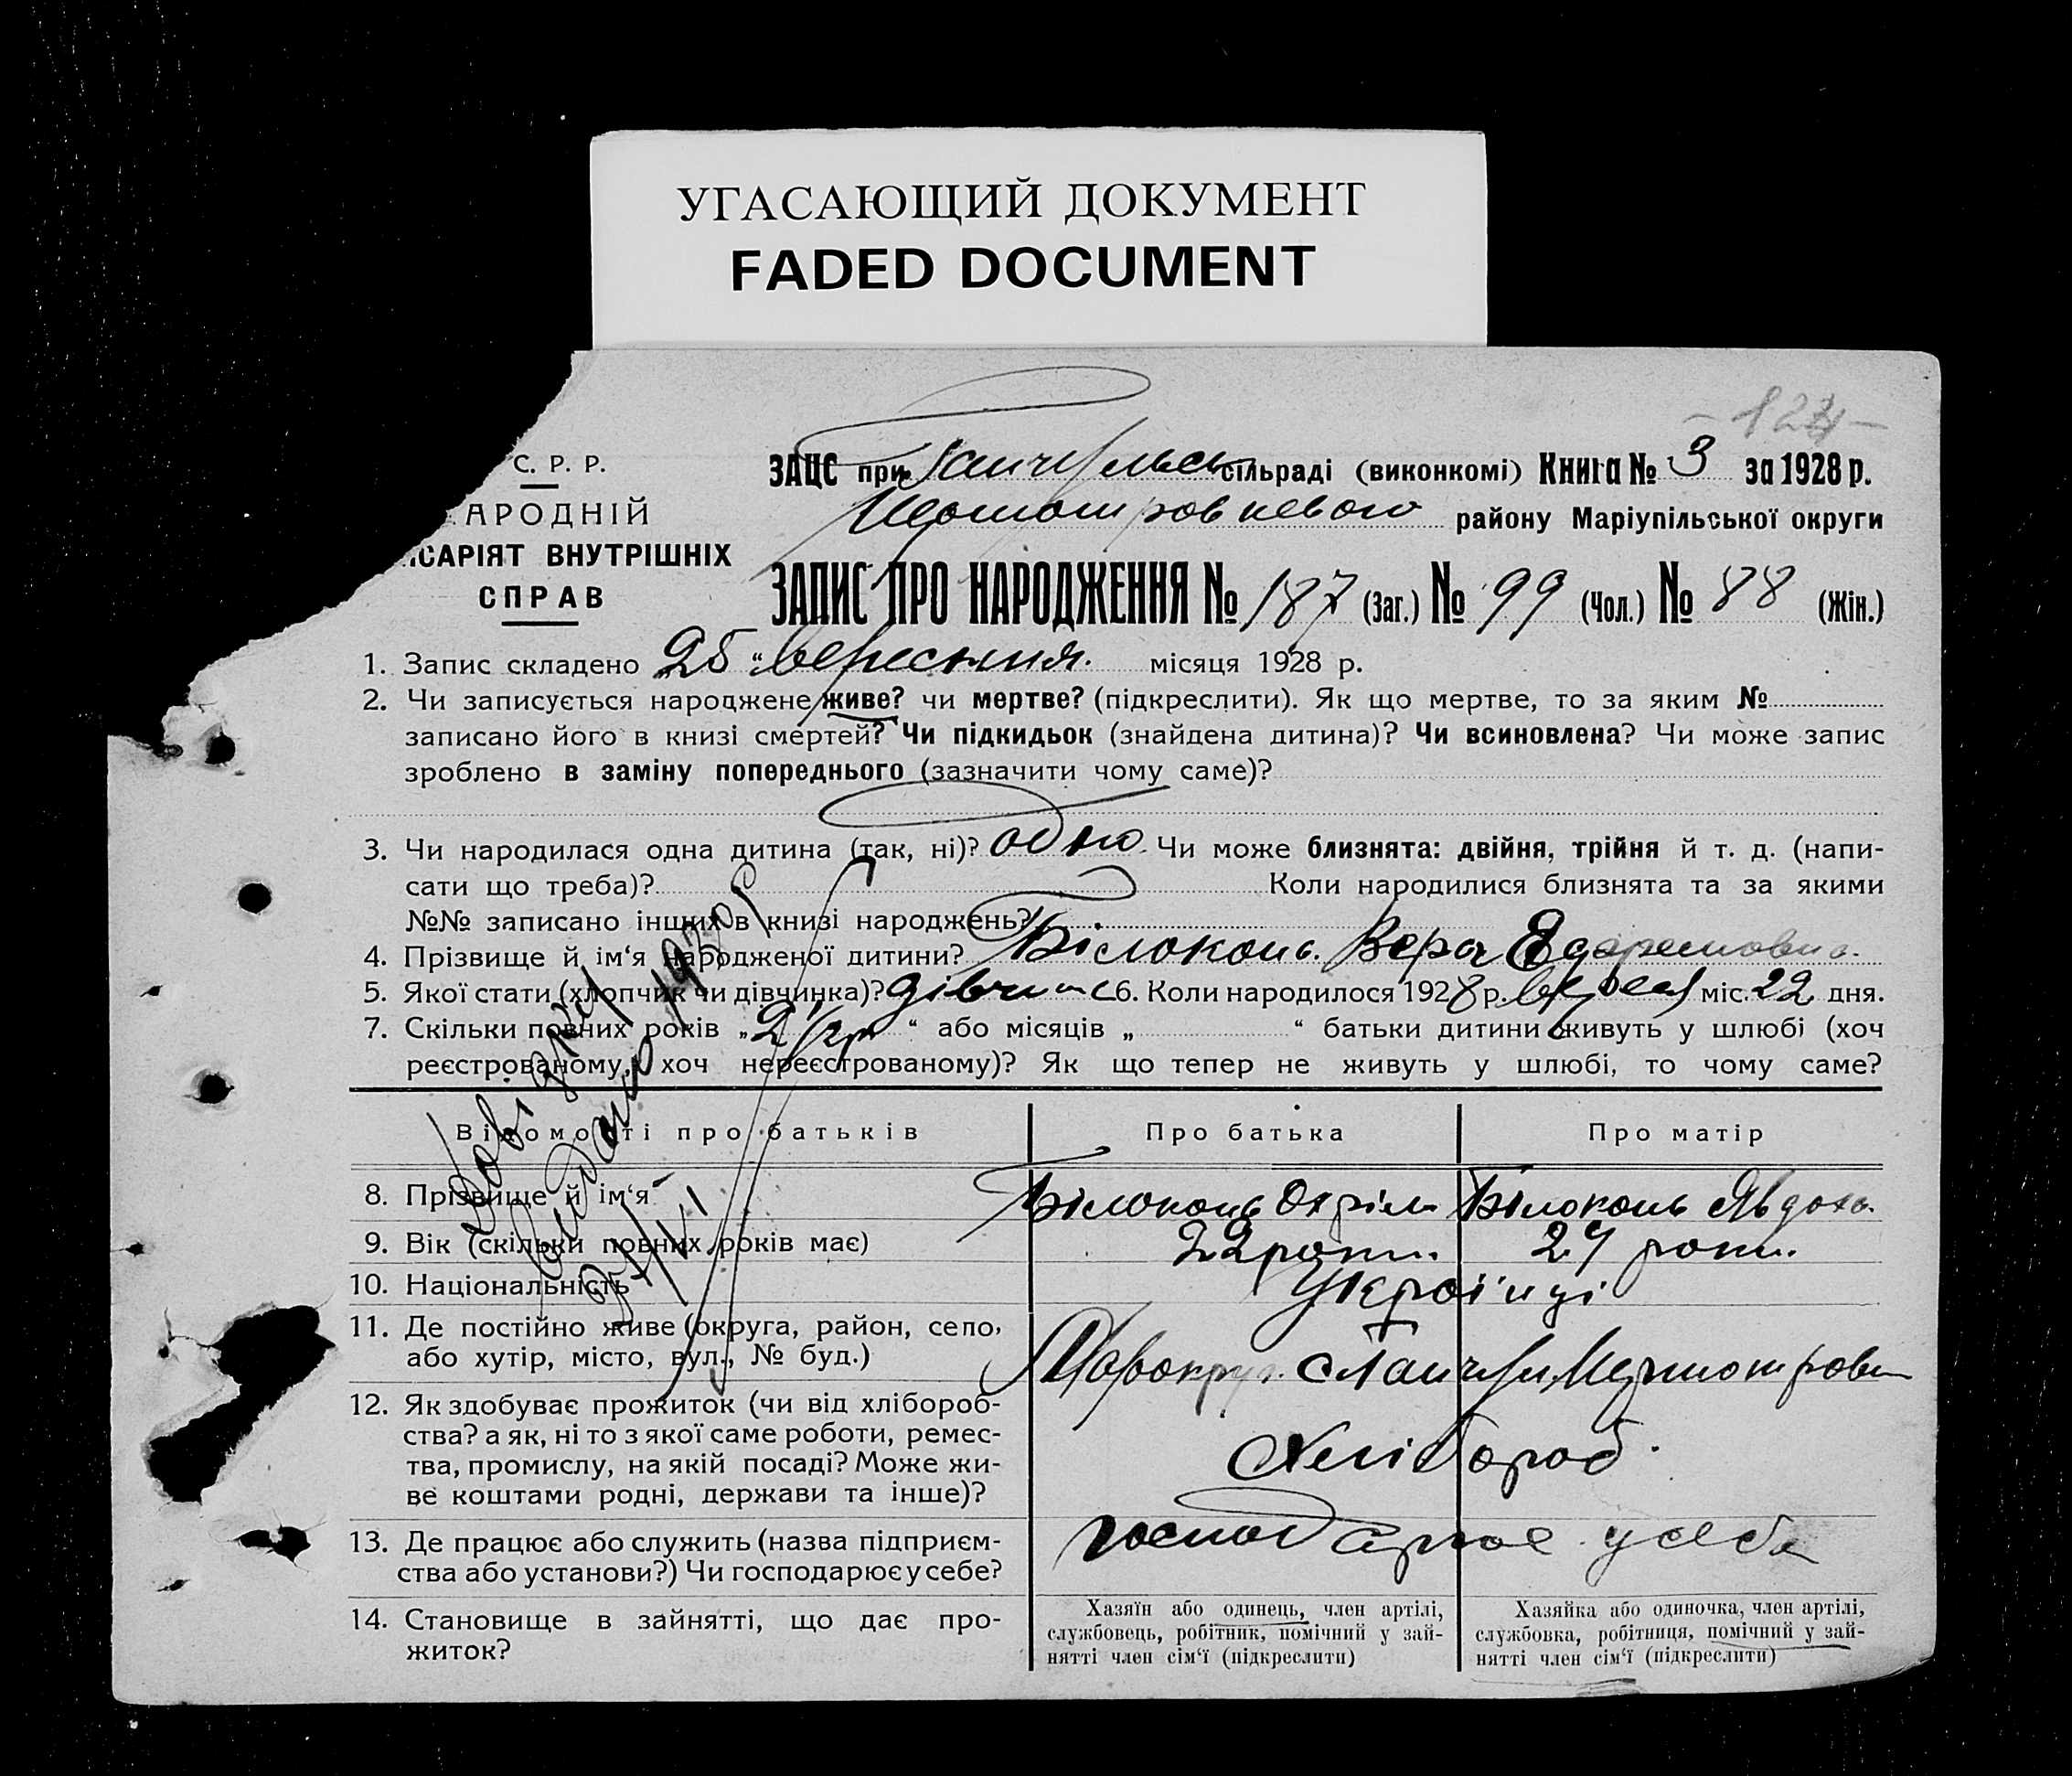 УГАСАЮЩИЙ ДОКУМЕНТ
FADED DOCUMENT
С. Р. Р.
АРОДНІЙ
ІСАРІЯТ ВНУТРІШНІХ
СПРАВ
ЗАЦС при сільраді (виконкомі) Книга № 3 за 1928 р.
району Маріупільської округи
ЗАПИС ПРО НАРОДЖЕННЯ № 187 (Заг.) № 99 (Чол.) № 88 (Жін.)
1. Запис складено „25“ вересния місяця 1928 р.
2. Чи записується народжене живе? чи мертве? (підкреслити). Як що мертве, то за яким №
записано його в книзі смертей? Чи підкидьок (знайдена дитина)? Чи всиновлена? Чи може запис
зроблено в заміну попереднього (зазначити чому саме)?
3. Чи народилася одна дитина (так, ні)? одно. Чи може близнята: двійня, трійня й т. д. (напи-
сати що треба)? Коли народилися близнята та за якими
№№ записано інших в книзі народжень?
4. Прізвище й ім‘я народженої дитини? Білоконь Вера
5. Якої стати (хлопчик чи дівчинка)? 6. Коли народилося 1928 р. міс. 22 дня.
7. Скільки повних років „ “ або місяців „ “ батьки дитини живуть у шлюбі (хоч
реєстрованому, хоч нереєстрованому)? Як що тепер не живуть у шлюбі, то чому саме?
Відомості про батьків Про батька Про матір
8. Прізвище й ім‘я Білоконь Охрім Білоконь Явдоха
9. Вік (скільки повних років має) 22 роки. роки.
10. Національність Українці
11. Де постійно живе (округа, район, село,
або хутір, місто, вул., № буд.)
12. Як здобуває прожиток (чи від хлібороб-
ства? а як, ні то з якої саме роботи, ремес-
тва, промислу, на якій посаді? Може жи-
ве коштами родні, держави та інше)? Хлібороб.
13. Де працює або служить (назва підприєм-
ства або установи?) Чи господарює у себе? господарює у себе
14. Становище в зайнятті, що дає про-
житок?
Хазяїн або одинець, член артілі,
службовець, робітник, помічний у зай-
нятті член сім‘ї (підкреслити)
Хазяйка або одиночка, член артілі,
службовка, робітниця, помічний у зай-
нятті член сім‘ї (підкреслити)